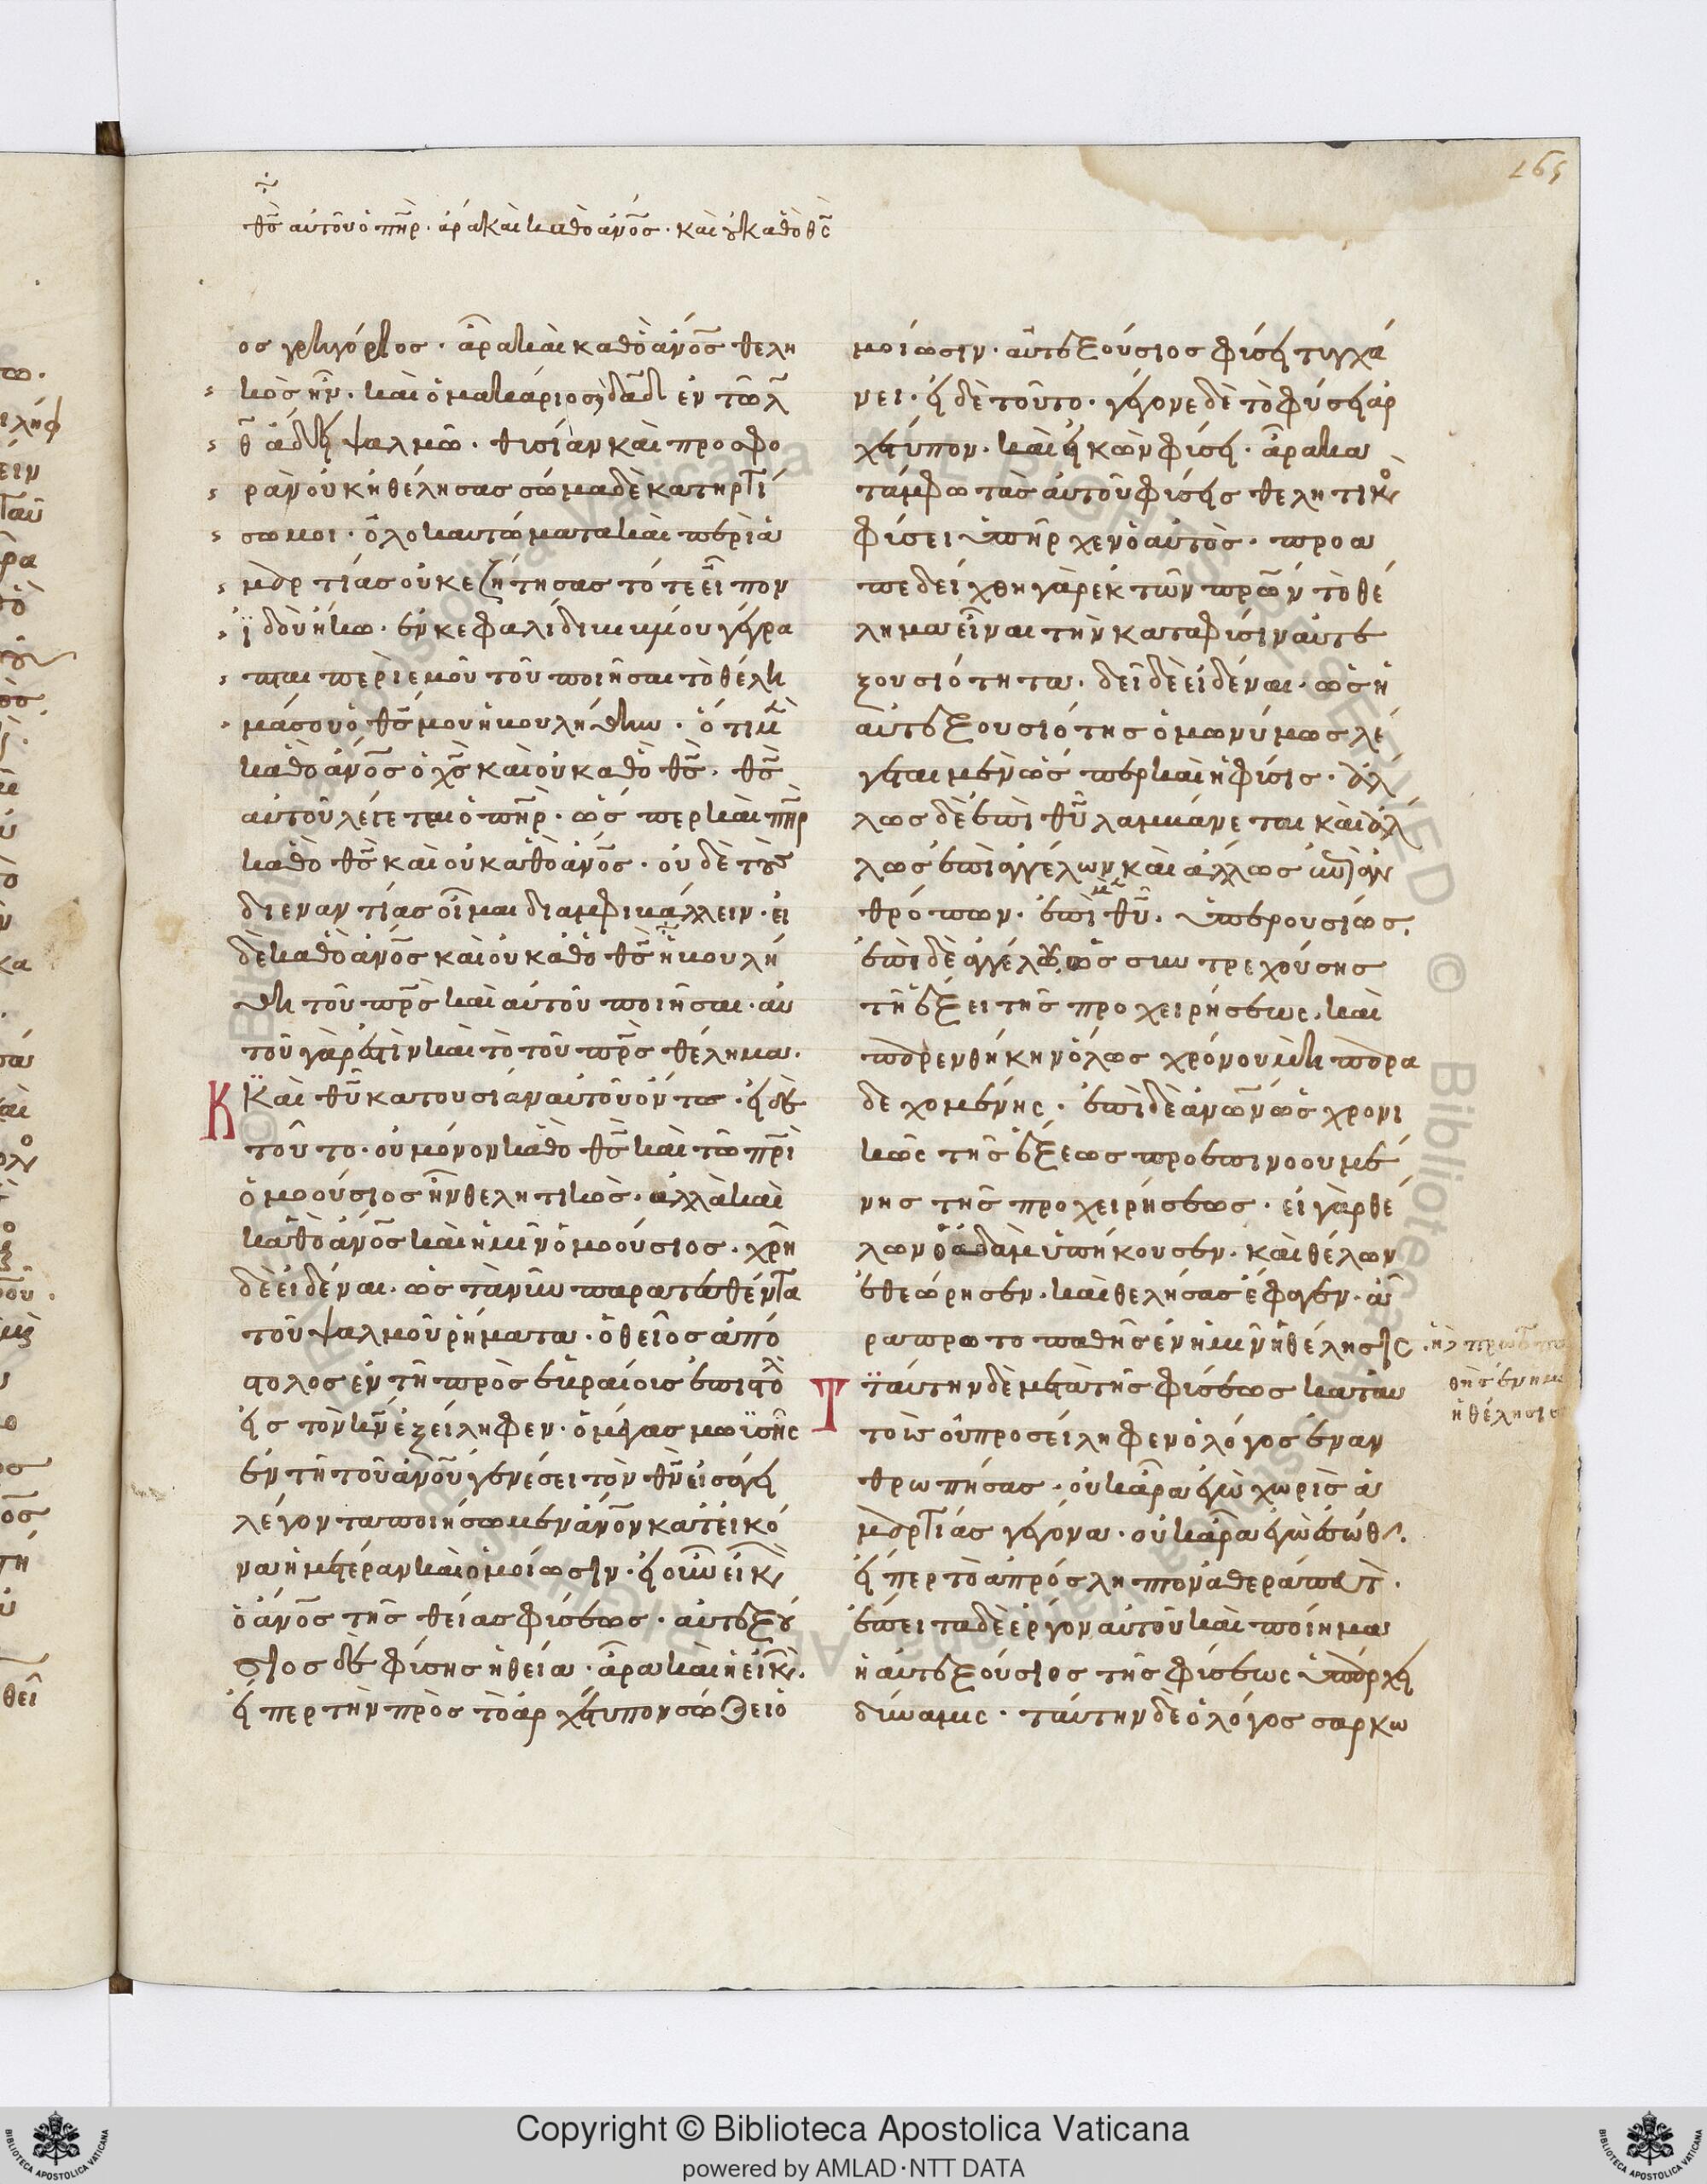 165
θ̅ς̅ αὐτοῦ ὁ π̅η̅ρ̅· ἄρα καὶ καθὸ ἄν̅ο̅ς̅· καὶ οὐ καθὸ θ̅ς̅
ος γρηγόριος· ἄρα καὶ καθὸ ἄν̅ο̅ς̅ θελη
κὸς ἦν· καὶ ὁ μακάριος δὲ δα̅δ̅ ἐν τῶ λ̅
θ̅ ἄδει ψαλμῶ· θυσίαν καὶ προσφο
ρὰν οὐκ ἠθέλησας σῶμα δὲ κατηρτί
σω μοι· ὁλοκαυτώματα καὶ περὶ ἁ
μαρτίας οὐκ ἐζήτησας τότε εἶπον
ἰδοὺ ἥκω· ἐν κεφαλίδι βιβλίου γέγρα
πται περὶ ἐμοῦ τοῦ ποιῆσαι τὸ θέλη
μά σου ὁ θ̅ς̅ μου ἠβουλήθην· ὅτι μὲν
καθὸ ἄν̅ο̅ς̅ ὁ χ̅ς̅ καὶ οὐ καθὸ θ̅ς̅· θ̅ς̅
αὐτοῦ λέγεται ὁ π̅η̅ρ̅· ὥσπερ καὶ π̅η̅ρ̅
καθὸ θ̅ς̅ καὶ οὐ καθὸ ἄν̅ο̅ς̅· οὐδὲ τοὺς
δι' ἐναντίας οἶμαι διαμφιβάλλειν· εἰ
δὲ καθὸ ἄν̅ο̅ς̅ καὶ οὐ καθὸ θ̅ς̅ ἠβουλή
θη τοῦ π̅ρ̅ς̅ καὶ αὐτοῦ ποιῆσαι· αὐ
τοῦ γάρ ἐστιν καὶ τὸ τοῦ π̅ρ̅ς̅ θέλημα·
Καὶ θ̅υ̅ κατουσίαν αὐτοῦ ὄντος· εἰ δὲ
τοῦτο· οὐ μόνον καθὸ θ̅ς̅ καὶ τῶ π̅ρ̅ι̅
ὁμοούσιος ἦν θελητικός· ἀλλὰ καὶ
καθὸ ἄν̅ο̅ς̅ καὶ ἡμῖν ὁμοούσιος· χρὴ
δὲ εἰδέναι· ὡς τὰ νῦν παρατεθέντα
τοῦ ψαλμοῦ ῥήματα· ὁ θεῖος ἀπό
στολος ἐν τῆ πρὸς ἑβραίοις ἐπιστολῆ
εἰς τὸν κ̅ν̅ ἐξείληφεν· ὁ μέγας μωϋσῆς
ἐν τῆ τοῦ ἀν̅ο̅υ̅ γενέσει τὸν θ̅ν̅ εἰσάγει
λέγοντα ποιήσωμεν ἄν̅ο̅ν̅ κατ' εἰκό
να ἡμετέραν καὶ ὁμοίωσιν· εἰ οὖν εἰκὼν
ὁ ἄν̅ο̅ς̅ τῆς θείας φύσεως· αὐτεξού
σιος δὲ φύσης ἡ θεία· ἄρα καὶ ἡ εἰκὼν·
εἴπερ τὴν πρὸς τὸ ἀρχέτυπον σώζει ὁ
μοίωσιν· αὐτεξούσιος φύσει τυγχά
νει· εἰ δὲ τοῦτο· γέγονε δὲ τὸ φύσει ἀρ
χέτυπον· καὶ εἰκὼν φύσει· ἄρα κα
τάμφω τὰς αὐτοῦ φύσεις θελητικὸς
φύσει ὑπῆρχεν ὁ αὐτὸς· προα
πεδείχθη γὰρ ἐκ τῶν π̅ρ̅ω̅ν̅ τὸ θέ
λημα εἶναι τὴν κατὰ φύσιν αὐτε
ξουσιότητα· δεῖ δὲ εἰδέναι· ὡς ἡ
αὐτεξουσιότης ὁμωνύμως λέ
γεται μὲν ὥσπερ καὶ ἡ φύσις· ἄλ
λως δὲ ἐπὶ θ̅υ̅ λαμβάνεται καὶ ἄλ
λως ἐπὶ ἀγγέλων καὶ ἄλλως ἐπὶ ἀν
θρώπων· ἐπὶ μὲν θ̅υ̅· ὑπερουσίως·
ἐπὶ δὲ ἀγγέλων, ὡς συντρεχούσης
τῆ ἕξει τῆς προχειρήσεως, καὶ
παρενθήκην ὅλως χρόνου μὴ παρα
δεχομένης· ἐπὶ δὲ ἀν̅ω̅ν̅ ὡς χρονι
κῶς τῆς ἕξεως προεπινοουμέ
νης τῆς προχειρήσεως· εἰ γὰρ θέ
λων ὁ ἀδὰμ ὑπήκουσεν· καὶ θέλων
ἐθεώρησεν· καὶ θελήσας ἔφαγεν· ἄ
ρα πρωτοπαθὴς ἐν ἡμῖν ἡ θέλησις
Ταύτην δὲ μετὰ τῆς φύσεως κατ' αὐ
τοὺς οὐ προσείληφεν ὁ λόγος ἐναν
θρωπήσας· οὐκ ἄρα ἐγὼ χωρὶς ἁ
μαρτίας γέγονα· οὐκ ἄρα ἐγὼ ἐσώθην·
εἴπερ τὸ ἀπρόσληπτον ἀθεράπευτον·
ἔπειτα δὲ ἔργον αὐτοῦ καὶ ποίημα
ἡ αὐτεξούσιος τῆς φύσεως ὑπάρχει
δύναμις· ταύτην δὲ ὁ λόγος σαρκω
θὴς ἐν ἡμῖ
ἡ θέλησις
Copyright © Biblioteca Apostolica Vaticana
powered by AMLAD·NTT DATA